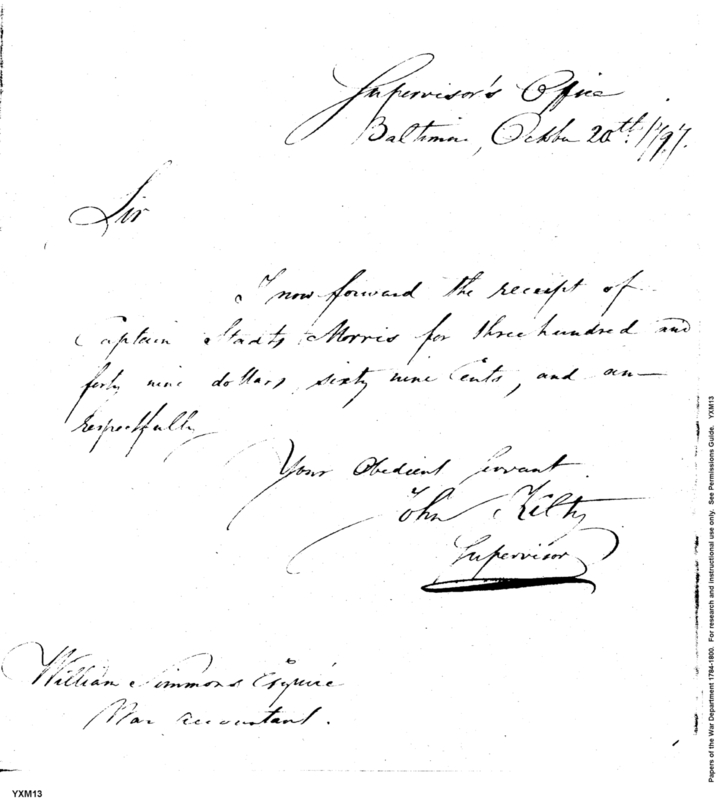 Supervisor's Office
Baltimore, October 20th 1797.
Sir
I now forward the receipt of
Captain Staats Morris for three hundred and
forty nine dollars sixty nine Cents, and am
respectfully
Your Obedient Servant
John Kilty
Supervisor
William Simmons Esquire
War Accountant.
YXM13
Papers of the War Department 1784-1800. For research and instructional use only. See Permissions Guide. YXM13